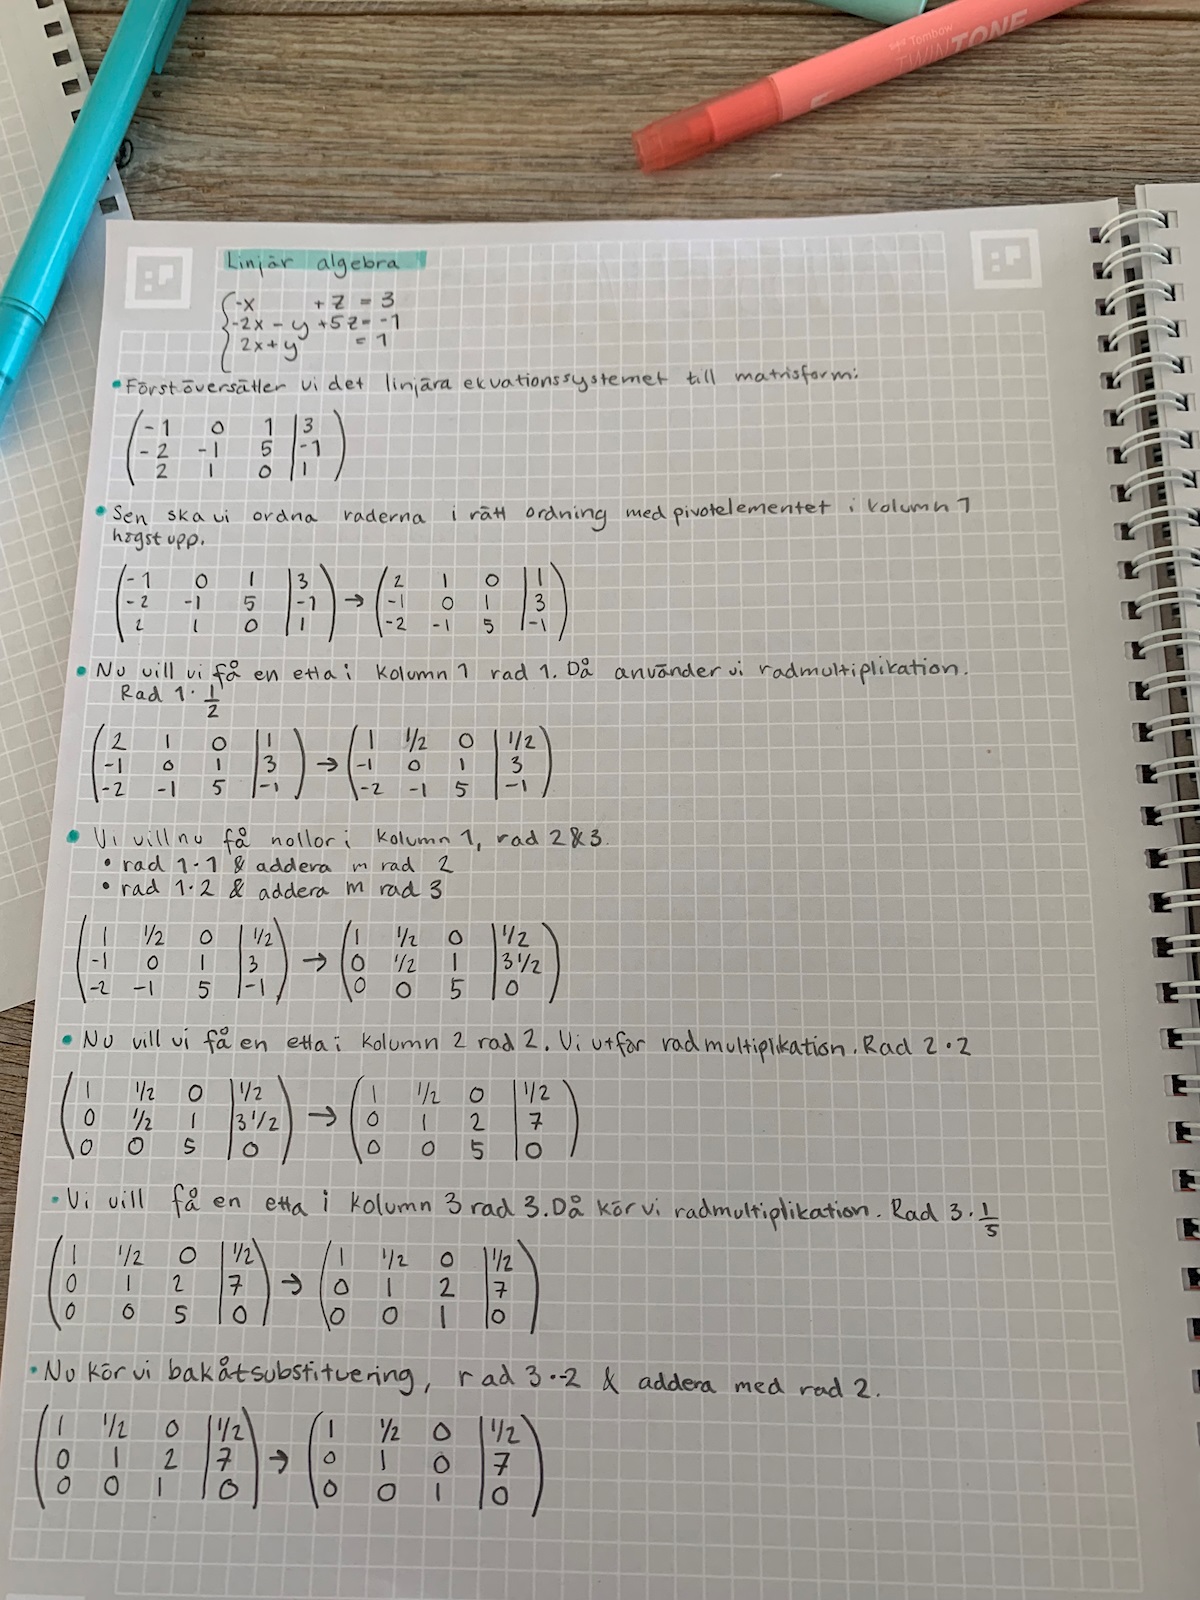 see Tombow
TWINTONE
Linjär algebra
-x +z = 3
-2x - y +5z = -1
2x+y = 1
• Först översätter vi det linjära ekvationssystemet till matrisform:
-1 0 1 | 3
-2 -1 5 | -1
2 1 0 | 1
• Sen ska vi ordna raderna i rätt ordning med pivotelementet i kolumn 1
högst upp.
-1 0 1 | 3 → 2 1 0 | 1
-2 -1 5 | -1 -1 0 1 | 3
2 1 0 | 1 -2 -1 5 | -1
• Nu vill vi få en etta i kolumn 1 rad 1. Då använder vi radmultiplikation.
Rad 1 · 1/2
2 1 0 | 1 → 1 1/2 0 | 1/2
-1 0 1 | 3 -1 0 1 | 3
-2 -1 5 | -1 -2 -1 5 | -1
• Vi vill nu få nollor i kolumn 1, rad 2 & 3.
• rad 1·1 & addera m rad 2
• rad 1·2 & addera m rad 3
1 1/2 0 | 1/2 → 1 1/2 0 | 1/2
-1 0 1 | 3 0 1/2 1 | 3 1/2
-2 -1 5 | -1 0 0 5 | 0
• Nu vill vi få en etta i kolumn 2 rad 2. Vi utför radmultiplikation. Rad 2·2
1 1/2 0 | 1/2 → 1 1/2 0 | 1/2
0 1/2 1 | 3 1/2 0 1 2 | 7
0 0 5 | 0 0 0 5 | 0
• Vi vill få en etta i kolumn 3 rad 3. Då kör vi radmultiplikation. Rad 3 · 1/5
1 1/2 0 | 1/2 → 1 1/2 0 | 1/2
0 1 2 | 7 0 1 2 | 7
0 0 5 | 0 0 0 1 | 0
• Nu kör vi bakåtsubstituering, rad 3·-2 & addera med rad 2.
1 1/2 0 | 1/2 → 1 1/2 0 | 1/2
0 1 2 | 7 0 1 0 | 7
0 0 1 | 0 0 0 1 | 0